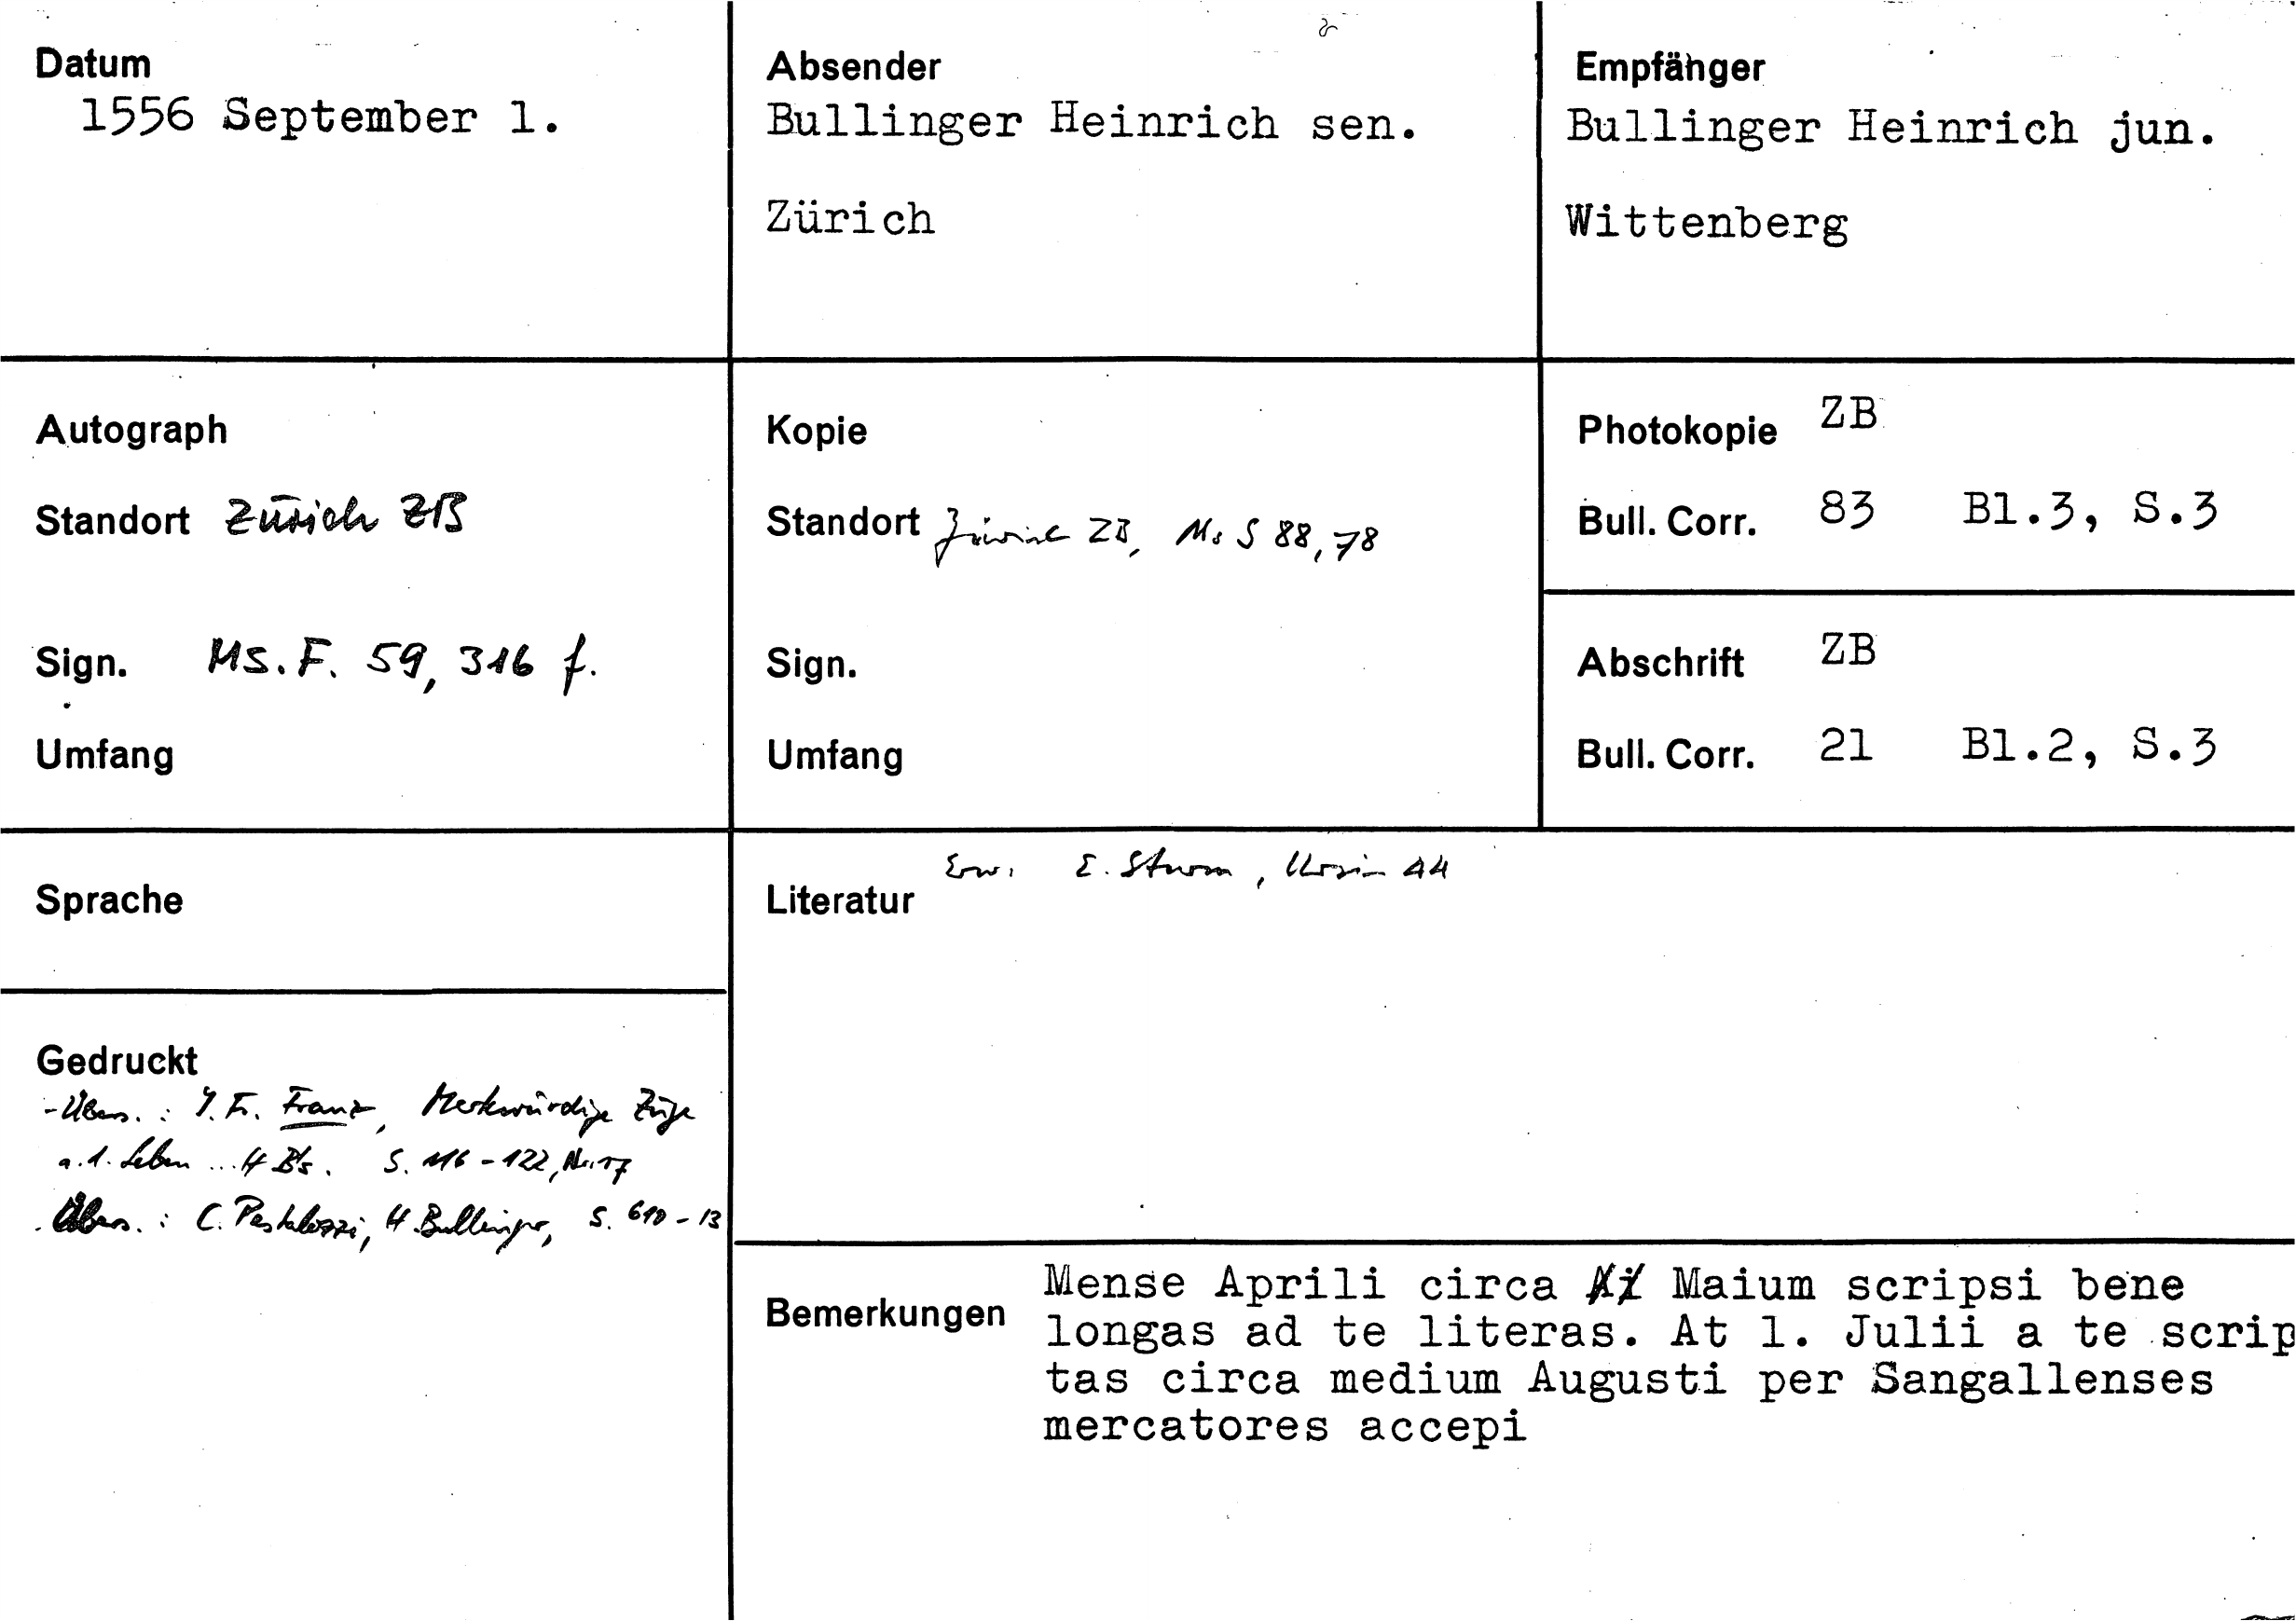 Datum
1556 September 1.
Absender
Bullinger Heinrich sen.
Zürich
Empfänger
Bullinger Heinrich jun.
Wittenberg
Autograph
Standort Zürich ZB
Sign. MS. F. 59, 316 f.
Umfang
Kopie
Standort Zürich ZB, Ms S 88, 78
Sign.
Umfang
Photokopie ZB
Bull. Corr. 83 Bl.3, S.3
Abschrift ZB
Bull. Corr. 21 Bl.2, S.3
Sprache
Literatur Erw. E. Sturm, Ursin 44
Gedruckt
- Übers. : J. Fr. Franz, Merkwürdige Züge
a. d. Leben ... H Bs. S. 116 - 122, Nr. 17
Übers. : C. Pestalozzi, H. Bullinger, S. 610 - 13
Bemerkungen
Mense Aprili circa Maium scripsi bene
longas ad te literas. At 1. Julii a te scrip
tas circa medium Augusti per Sangallenses
mercatores accepi